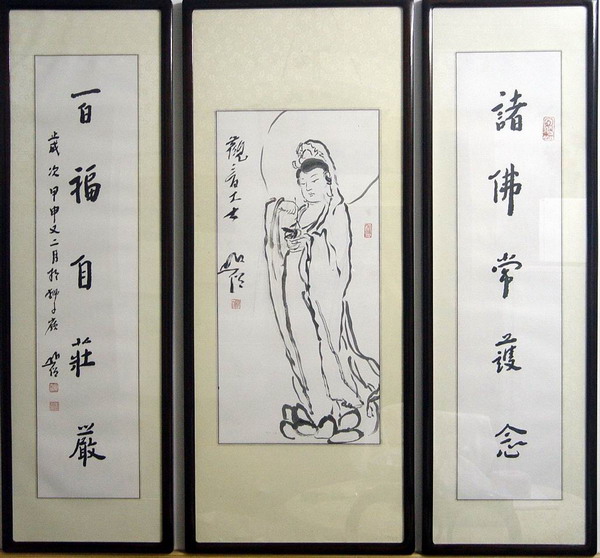 諸佛常護念
觀音大士
百福自莊嚴
歲次甲申又二月於